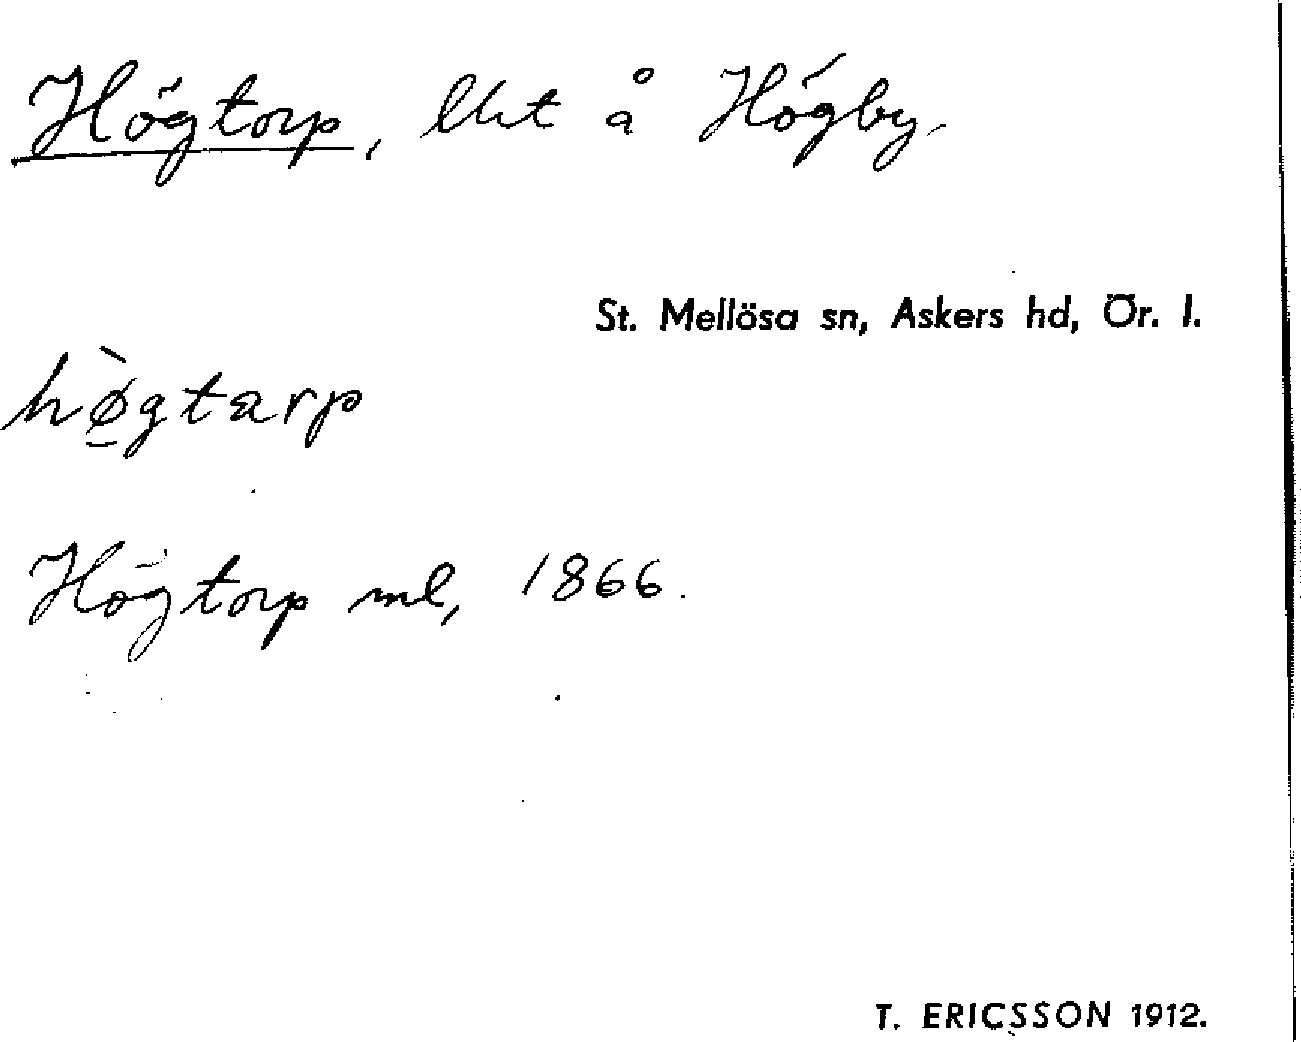 Högtorp, lht å Högby.
St. Mellösa sn, Askers hd, Ör. l.
hø̀gtarp
Högtorp ml, 1866.
T. ERICSSON 1912.